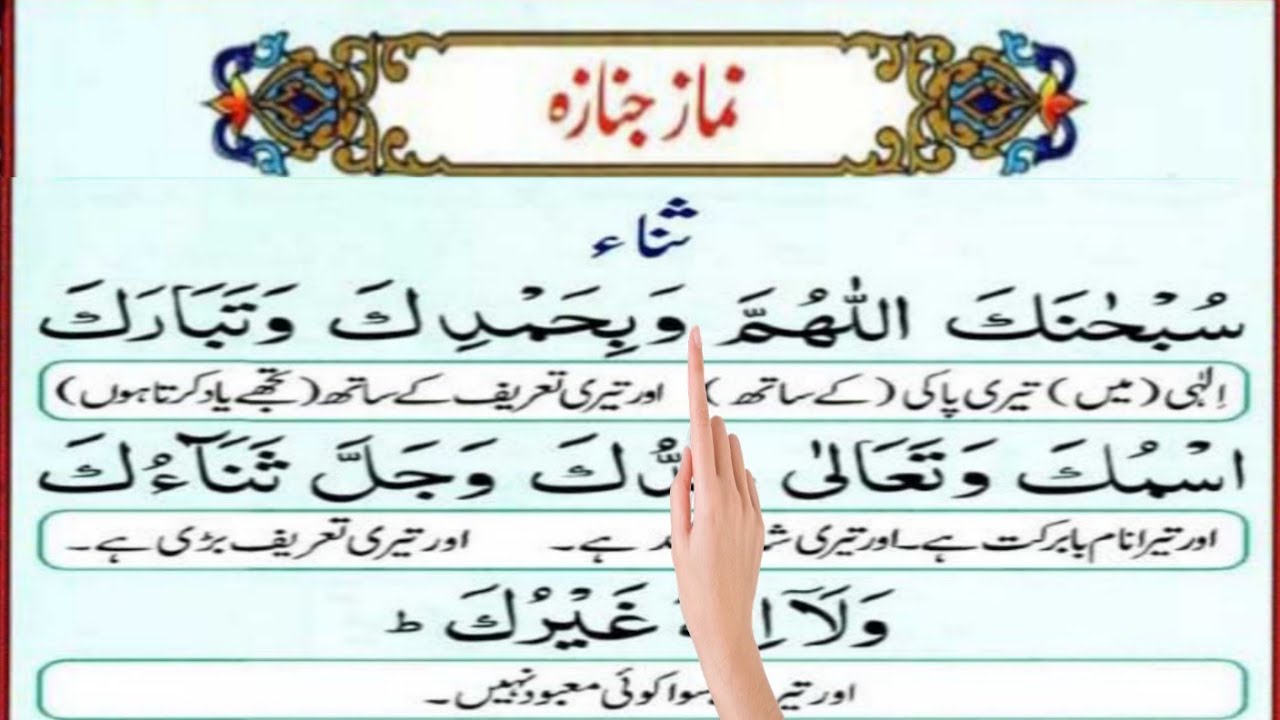 نماز جنازہ
ثناء
سُبْحٰنَكَ اللّٰهُمَّ وَبِحَمْدِكَ وَتَبَارَكَ
اِلٰہی (میں) تیری پاکی (کے ساتھ) اور تیری تعریف کے ساتھ (تجھے یاد کرتا ہوں)
اسْمُكَ وَتَعَالىٰ وَجَلَّ ثَنَآءُكَ
اور تیرا نام بابرکت ہے۔ اور تیری ہے۔ اور تیری تعریف بڑی ہے۔
وَلَآ غَيْرُكَ ط
اور سوا کوئی معبود نہیں۔